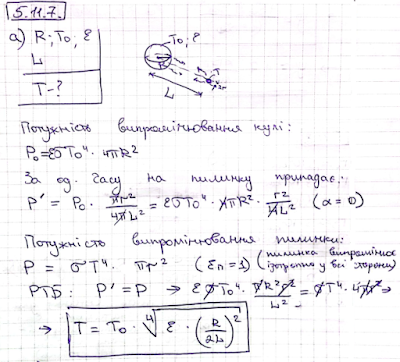 5.11.7.
а) R; T₀; ε
L
T-?
T₀; ε
R
T
L
Потужність випромінювання кулі:
P₀=εσT₀⁴·4πR²
За од. часу на пилинку припадає:
P' = P₀ · πr²/4πL² = εσT₀⁴ · 4πR² · r²/4L² (α = 0)
Потужність випромінювання пилинки:
P = σT⁴ · πr² (εп = 1) (пилинка випромінює ізотропно у всі сторони)
РТБ: P' = P ⇒ εσT₀⁴ · πR²r²/L² = σT⁴ · 4πr² ⇒
⇒ T = T₀ · ⁴√(ε · (R/2L)²)